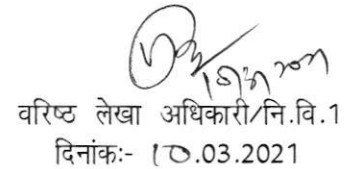 वरिष्ठ लेखा अधिकारी/नि.वि.1
दिनांकः- 10.03.2021